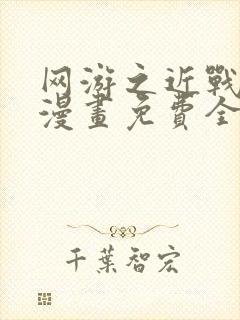 网游之近戰
漫畫免費全
千葉智宏